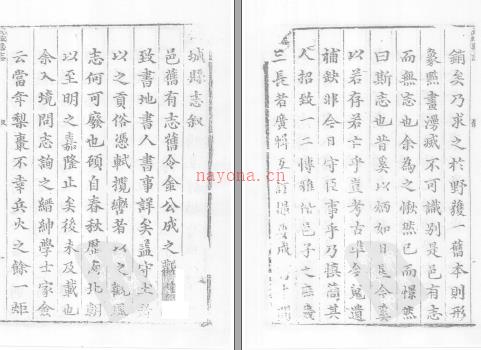 城縣志敘
邑舊有志舊令金公成之
致書地書人書事詳矣蓋守土者
以之貢俗憑軾攬轡者以之觀風
志何可廢也頋自春秋歷南北朝
以至明之嘉隆止矣後未及載也
余入境問志詢之縉紳學士家僉
云當年梨棗不幸兵火之餘一炬
銷矣乃求之於野獲一舊本則形
象點畫漫滅不可識別是邑有志
而無志也余為之愀然已而憬然
曰斯志也昔奚以炳如日星今奚
以若存若亡乎亟考古準今蒐遺
補缺非今日守臣事乎乃慎簡其
人招致一二博雅偕邑子之
三長若廣輯互訂成
nayona.cn